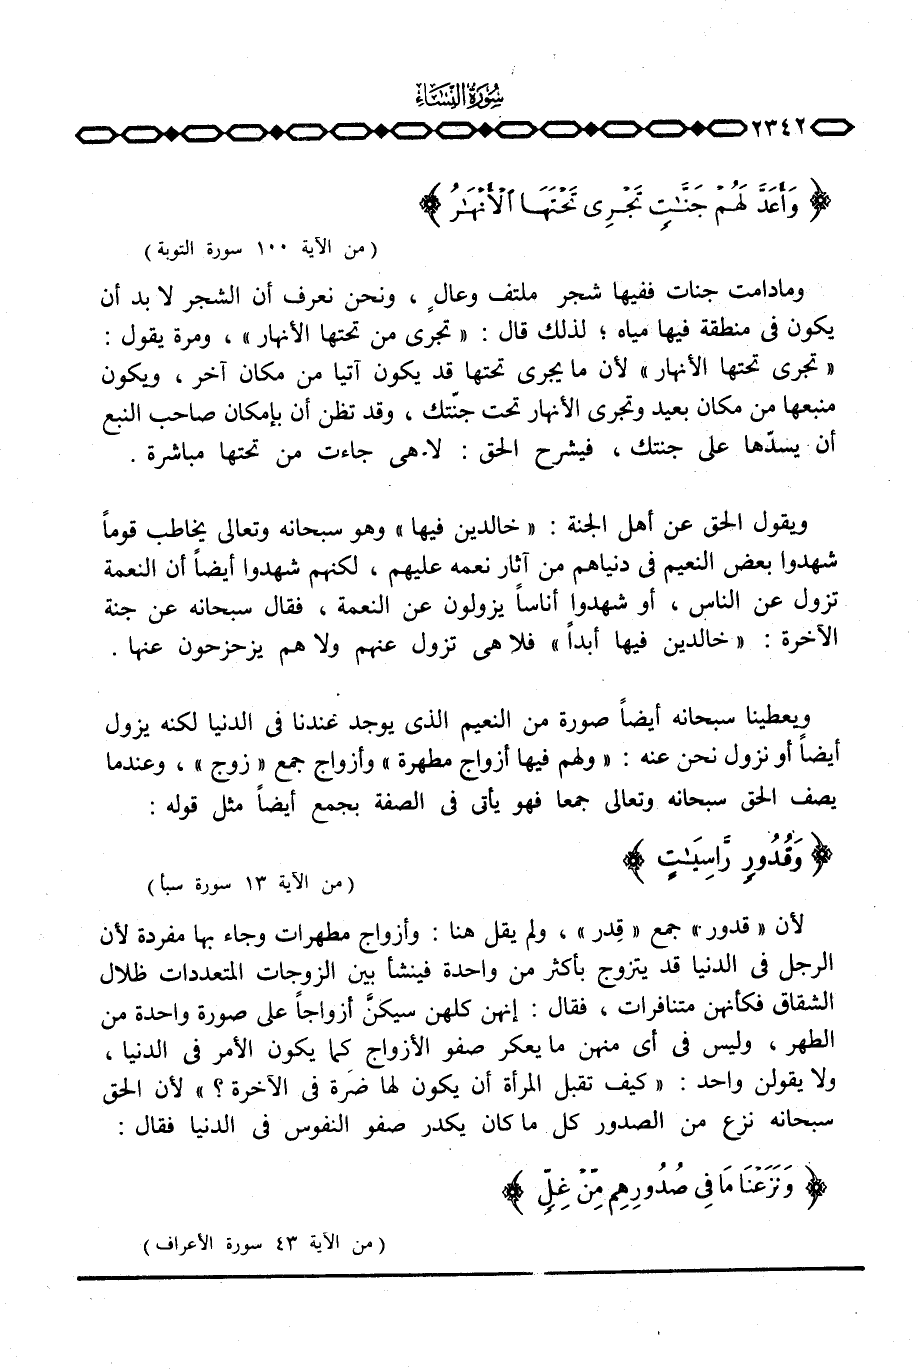 سورة النساء
٢٣٤٢
﴿ وَأَعَدَّ لَهُمْ جَنَّٰتٍ تَجْرِى تَحْتَهَا ٱلْأَنْهَٰرُ ﴾
( من الآية ١٠٠ سورة التوبة )
ومادامت جنات ففيها شجر ملتف وعالٍ ، ونحن نعرف أن الشجر لا بد أن
يكون فى منطقة فيها مياه ؛ لذلك قال : « تجرى من تحتها الأنهار » ، ومرة يقول :
« تجرى تحتها الأنهار » لأن ما يجرى تحتها قد يكون آتيا من مكان آخر ، ويكون
منبعها من مكان بعيد وتجرى الأنهار تحت جنّتك ، وقد تظن أن بإمكان صاحب النبع
أن يسدّها على جنتك ، فيشرح الحق : لا. هى جاءت من تحتها مباشرة .
ويقول الحق عن أهل الجنة : « خالدين فيها » وهو سبحانه وتعالى يخاطب قوماً
شهدوا بعض النعيم فى دنياهم من آثار نعمه عليهم ، لكنهم شهدوا أيضاً أن النعمة
تزول عن الناس ، أو شهدوا أناساً يزولون عن النعمة ، فقال سبحانه عن جنة
الآخرة : « خالدين فيها أبداً » فلا هى تزول عنهم ولا هم يزحزحون عنها .
ويعطينا سبحانه أيضاً صورة من النعيم الذى يوجد عندنا فى الدنيا لكنه يزول
أيضاً أو نزول نحن عنه : « ولهم فيها أزواج مطهرة » وأزواج جمع « زوج » ، وعندما
يصف الحق سبحانه وتعالى جمعا فهو يأتى فى الصفة بجمع أيضاً مثل قوله :
﴿ وَقُدُورٍ رَّاسِيَٰتٍ ﴾
( من الآية ١٣ سورة سبأ )
لأن « قدور » جمع « قِدر » ، ولم يقل هنا : وأزواج مطهرات وجاء بها مفردة لأن
الرجل فى الدنيا قد يتزوج بأكثر من واحدة فينشأ بين الزوجات المتعددات ظلال
الشقاق فكأنهن متنافرات ، فقال : إنهن كلهن سيكنَّ أزواجاً على صورة واحدة من
الطهر ، وليس فى أى منهن ما يعكر صفو الأزواج كما يكون الأمر فى الدنيا ،
ولا يقولن واحد : « كيف تقبل المرأة أن يكون لها ضَرة فى الآخرة ؟ » لأن الحق
سبحانه نزع من الصدور كل ما كان يكدر صفو النفوس فى الدنيا فقال :
﴿ وَنَزَعْنَا مَا فِى صُدُورِهِم مِّنْ غِلٍّ ﴾
( من الآية ٤٣ سورة الأعراف )